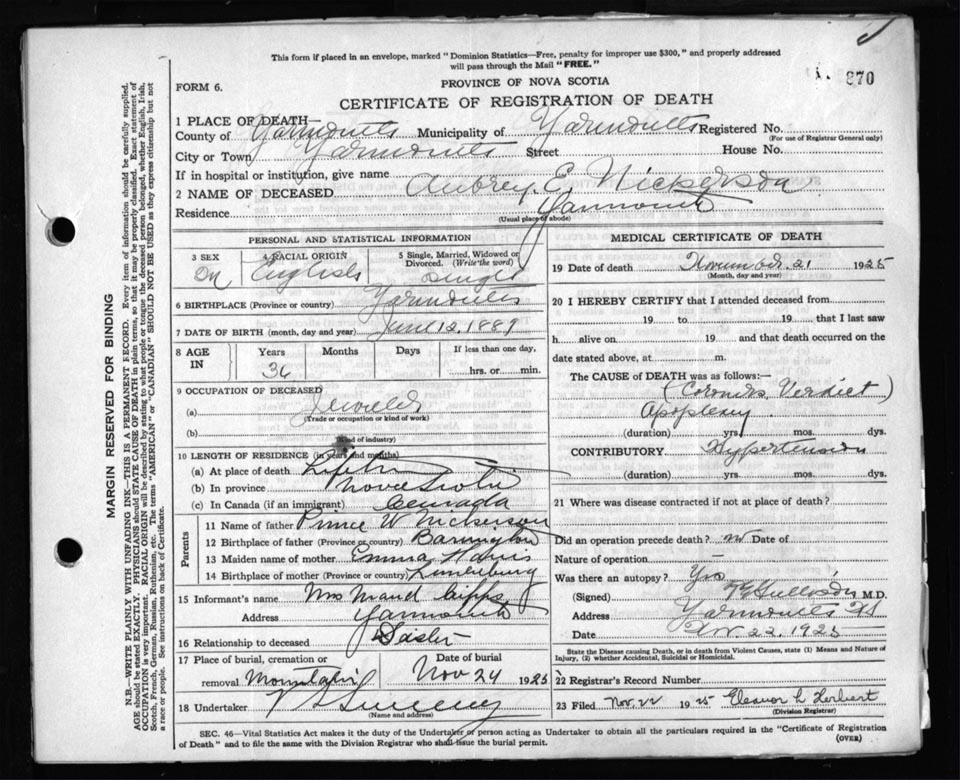 This form if placed in an envelope, marked "Dominion Statistics—Free, penalty for improper use $300," and properly addressed
will pass through the Mail "FREE."
870
FORM 6.
PROVINCE OF NOVA SCOTIA
CERTIFICATE OF REGISTRATION OF DEATH
1 PLACE OF DEATH—
County of Yarmouth Municipality of Yarmouth Registered No.
(For use of Registrar General only)
City or Town Yarmouth Street House No.
If in hospital or institution, give name
2 NAME OF DECEASED Aubrey E. Nickerson
Residence Yarmouth
(Usual place of abode)
PERSONAL AND STATISTICAL INFORMATION
3 SEX 4 RACIAL ORIGIN 5 Single, Married, Widowed or
Divorced. (Write the word)
M English Single
6 BIRTHPLACE (Province or country) Yarmouth
7 DATE OF BIRTH (month, day and year) June 12, 1889
8 AGE IN Years Months Days If less than one day,
36 hrs. or min.
9 OCCUPATION OF DECEASED
(a) Jeweler
(Trade or occupation or kind of work)
(b)
(Kind of industry)
10 LENGTH OF RESIDENCE (in years and months)
(a) At place of death Lifetime
(b) In province Nova Scotia
(c) In Canada (if an immigrant) Canada
Parents
11 Name of father Prince W Nickerson
12 Birthplace of father (Province or country) Barrington
13 Maiden name of mother Emma Harris
14 Birthplace of mother (Province or country) Lunenburg
15 Informant's name Mrs Maud
Address Yarmouth
16 Relationship to deceased Sister
17 Place of burial, cremation or Date of burial
removal Mountain Nov 24 1925
18 Undertaker V S Sweeny
(Name and address)
MEDICAL CERTIFICATE OF DEATH
19 Date of death November 21 1925
(Month, day and year)
20 I HEREBY CERTIFY that I attended deceased from
19 to 19 that I last saw
h alive on 19 and that death occurred on the
date stated above, at m.
The CAUSE of DEATH was as follows:—
(Coroner's Verdict)
Apoplexy
(duration) yrs. mos. dys.
CONTRIBUTORY Hypertension
(duration) yrs. mos. dys.
21 Where was disease contracted if not at place of death?
Did an operation precede death? no Date of
Nature of operation —
Was there an autopsy? Yes
(Signed) M.D.
Address Yarmouth NS
Date Nov. 22, 1925
State the Disease causing Death, or in death from Violent Causes, state (1) Means and Nature of
Injury, (2) whether Accidental, Suicidal or Homicidal.
22 Registrar's Record Number
23 Filed Nov. 22 1925 Eleanor L Herbert
(Division Registrar)
SEC. 46—Vital Statistics Act makes it the duty of the Undertaker or person acting as Undertaker to obtain all the particulars required in the "Certificate of Registration
of Death" and to file the same with the Division Registrar who shall issue the burial permit. (OVER)
MARGIN RESERVED FOR BINDING
N.B.—WRITE PLAINLY WITH UNFADING INK—THIS IS A PERMANENT RECORD. Every item of information should be carefully supplied.
AGE should be stated EXACTLY. PHYSICIANS should STATE CAUSE OF DEATH in plain terms, so that it may be properly classified. Exact statement of
OCCUPATION is very important. RACIAL ORIGIN will be described by stating to what people or tongue the deceased person belonged, whether English, Irish,
Scotch, French, German, Russian, Ruthenian, etc. The terms "AMERICAN" or "CANADIAN" SHOULD NOT BE USED as they express citizenship but not
a race or people. See instructions on back of Certificate.